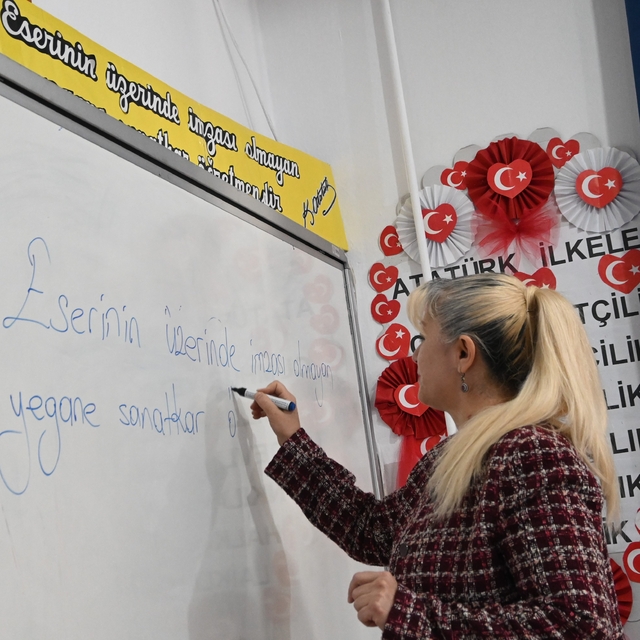 Eserinin üzerinde imzası olmayan
sanatkar öğretmendir
K. Atatürk
Eserinin üzerinde imzası olmayan
yegane sanatkar ö
ATATÜRK İLKELE
TÇİL
ÇİLİK
LİK
LIK